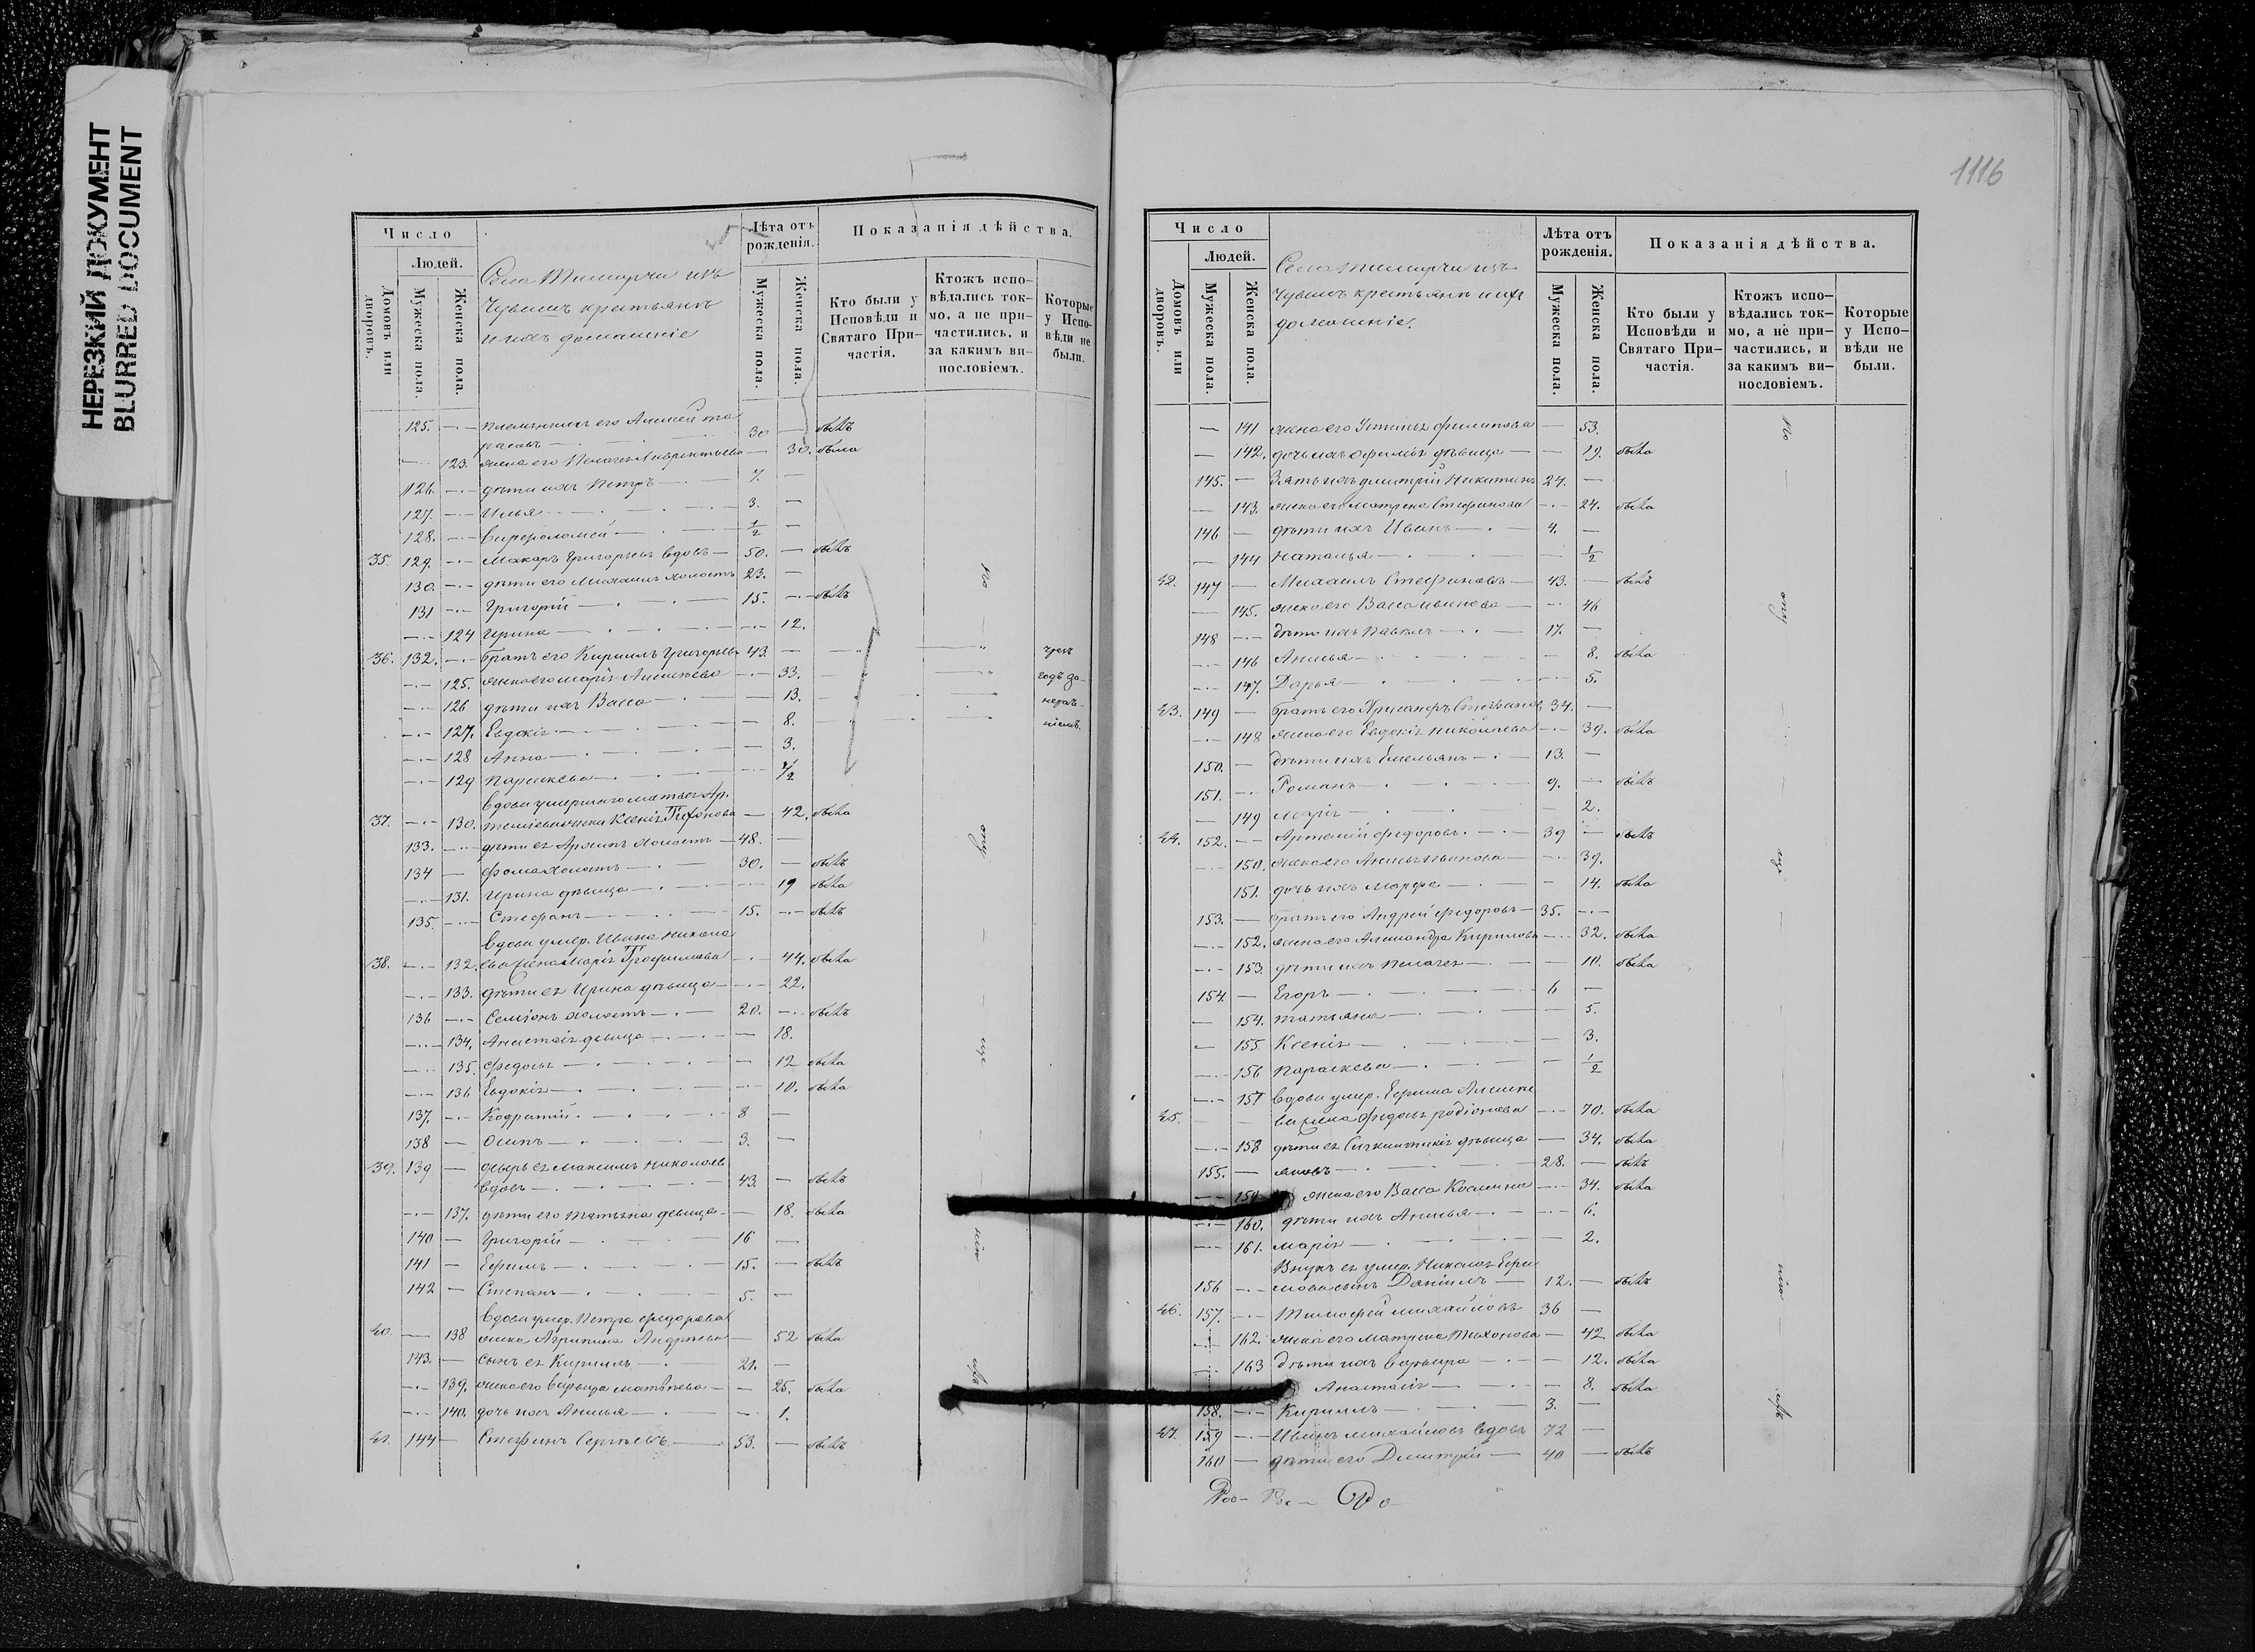 НЕРЕЗКИЙ ДОКУМЕНТ
BLURRED DOCUMENT
Число
Людей.
Домовъ или дворовъ.
Мужеска пола.
Женска пола.
Села
изъ
Чувашъ крестьянъ
и ихъ домашніе
Лѣта отъ рожденія.
Мужеска пола.
Женска пола.
Показанія дѣйства.
Кто были у Исповѣди и Святаго При-частія.
Ктожъ испо-вѣдались ток-мо, а не при-частились, и за какимъ ви-нословіемъ.
Которые у Испо-вѣди не были.
125. племянникъ его Алексѣй Та
расовъ 30 былъ
123. жена его Пелагея Лаврентьева 30. была
126. дѣти ихъ Петръ 7.
127. Илья 3.
128. Варфоломей 1/2
35. 129. Макаръ Григорьевъ вдовъ 50. былъ
130. дѣти его Михаилъ холостъ 23.
131 Григорій 15. былъ
124 Ирина 12.
36. 132. братъ его Кириллъ Григорьевъ 43.
125. жена его Марія Алексѣева 33.
126 дѣти ихъ Васса 13.
127. Евдокія 8.
128 Анна 3.
129 Параскева 1/2
вдова умершаго Матвея Ар.
37. 130. жена Ксенія Тихонова 42. была
133. дѣти ея Архипъ холостъ 48.
134 Фома холостъ 30. былъ
131. Ирина дѣвица 19 была
135. Стефанъ 15. былъ
вдова умер. Ивана Никола
38. 132. ева жена Марія Трофимова 44. была
133. дѣти ея Ирина дѣвица 22.
136 Семіонъ холостъ 20. былъ
134. Анастасія дѣвица 18.
135. Федосья 12 была
136 Евдокія 10. была
137. Кодратій 8
138 Осипъ 3.
39. 139 деверь ея Максимъ Николаевъ
вдовъ 43. былъ
137. дѣти его Татьяна дѣвица 18. была
140 Григорій 16
141 Ефимъ 15. былъ
142 Степанъ 5.
вдова умер. Петра Федорова
40. 138 жена Агрипина Андреева 52 была
143. сынъ ея Кириллъ 21.
139. жена его Варвара Матвѣева 25. была
140. дочь ихъ Анисья 1.
41. 144 Стефанъ Сергѣевъ 53. былъ
1116
Число
Людей.
Домовъ или дворовъ.
Мужеска пола.
Женска пола.
Села
изъ
Чувашъ крестьянъ и ихъ
домашніе.
Лѣта отъ рожденія.
Мужеска пола.
Женска пола.
Показанія дѣйства.
Кто были у Исповѣди и Святаго При-частія.
Ктожъ испо-вѣдались ток-мо, а не при-частились, и за какимъ ви-нословіемъ.
Которые у Испо-вѣди не были.
141 жена его Устинья Филипова 53.
142. дочь ихъ Офимія дѣвица 19. была
145. Зять ихъ Дмитрій Никитинъ 24.
143. жена его Матрена Стефанова 24. была
146 дѣти ихъ Иванъ 4.
144 Наталья 1/2
42. 147 Михаилъ Стефановъ 43. былъ
145. жена его Васса Иванова 46
148 дѣти ихъ Павелъ 17.
146 Анисья 8. была
147. Дарья 5.
43. 149 братъ его Александръ Стефановъ 34.
148 жена его Евдокія Николаева 39. была
150. дѣти ихъ Емельянъ 13.
151. Романъ 9. былъ
149 Марія 2.
44. 152. Артемій Федоровъ 39 былъ
150. жена его Анисья Иванова 39.
151. дочь ихъ Марфа 14. была
153. братъ его Андрей Федоровъ 35.
152. жена его Александра Кирилова 32. была
153. дѣти ихъ Пелагея 10. была
154 Егоръ 6
154. Татьяна 5.
155 Ксенія 3.
156 Параскева 1/2
157 вдова умер. Ефима Алексѣе
45. ва жена Федосья Родіонова 70. была
158 дѣти ея дѣвица 34. была
155. Яковъ 28. былъ
159 жена его Васса Козмина 34. была
160. дѣти ихъ Анисья 6.
161. Марія 2.
Внукъ ея умер. Николая Ефи
156 мова сынъ Даніилъ 12. былъ
46. 157. Тимофей Михайловъ 36
162. жена его Матрена Тихонова 42. была
163 дѣти ихъ Варвара 12. была
Анастасія 8. была
158. Кириллъ 3.
47. 159 Иванъ Михайловъ вдовъ 72
160 дѣти его Димитрій 40 былъ